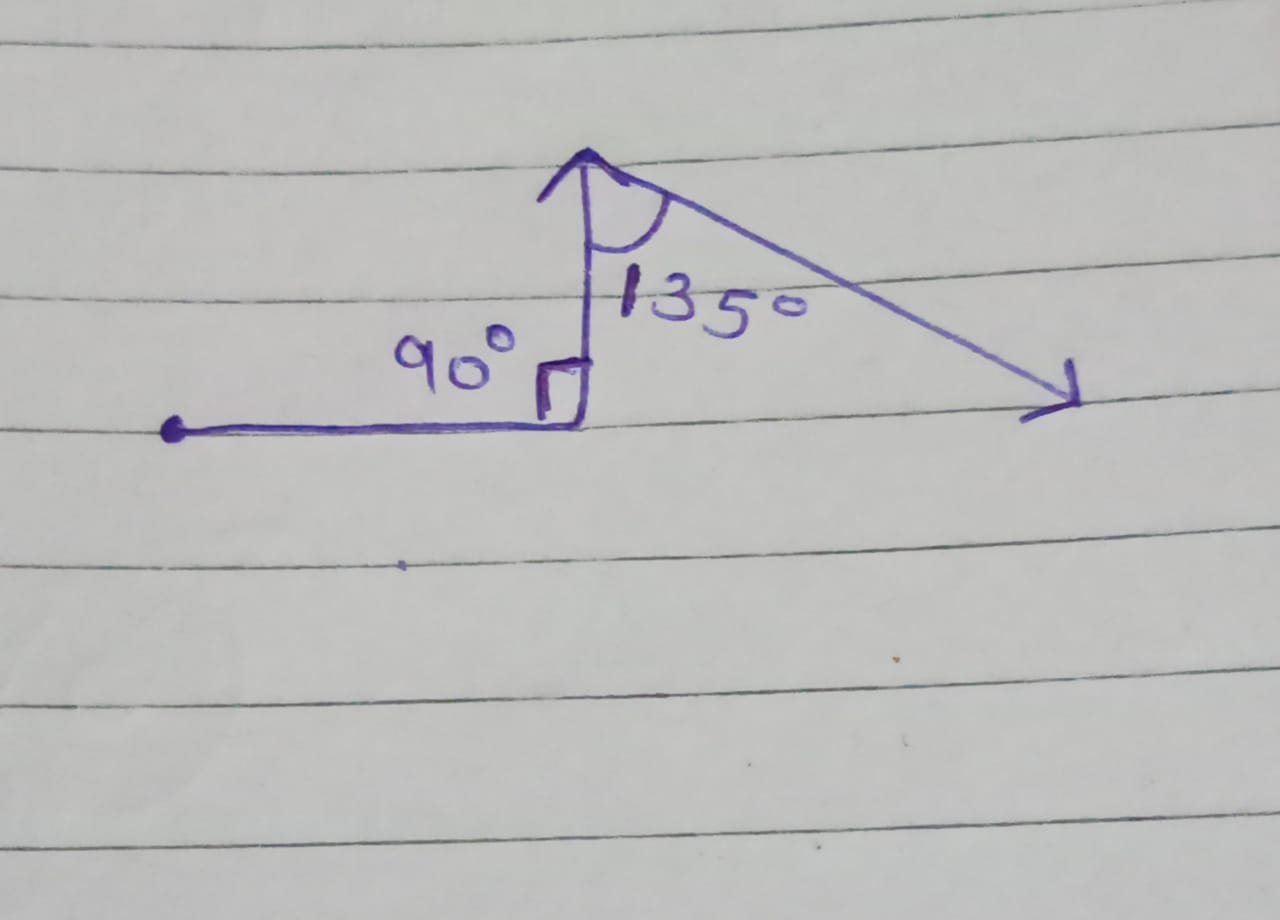 90°
135°